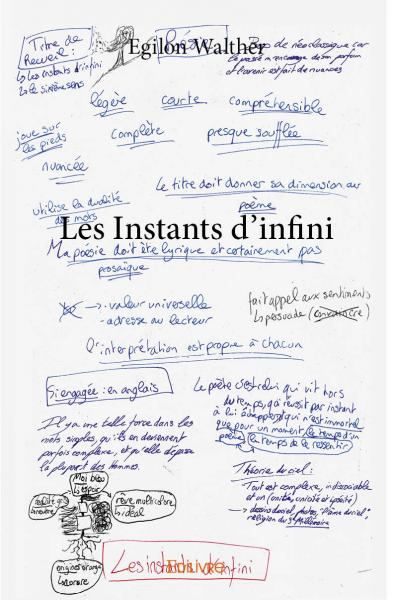 Egilon Walther
Titre de
Recueil :
↳ Les instants d'infini
↳ le sixième sens
Pas de néoclassique car
le passé m'encourage de son parfum
et l'avenir est fait de nuances
légère courte compréhensible
joue sur
les pieds
complète presque soufflée
nuancée
Le titre doit donner sa dimension au
poème
utilise la dualité
des mots
Les Instants d'infini
Ma poésie doit être lyrique et certainement pas
prosaïque
→ - valeur universelle
- adresse au lecteur
fait appel aux sentiments
↳ persuade
l'interprétation est propre à chacun
Si engagée : en anglais
Le poète c'est celui qui vit hors
du temps, qui réussit par instant
à lui échapper, qui n'est immortel
que pour un moment, le temps d'un
poème, le temps de le ressentir.
Il y a une telle force dans les
mots simples, qu'ils en deviennent
parfois complexe, et qu'elle dépasse
la plupart des Hommes.
Théorie du ciel :
Tout est complexe, indissociable
et un
religion du 3e Millénaire
Moi bleu
↳ espoir
rêve multicolore
↳ idéal
origines orange
Les instants d'infini